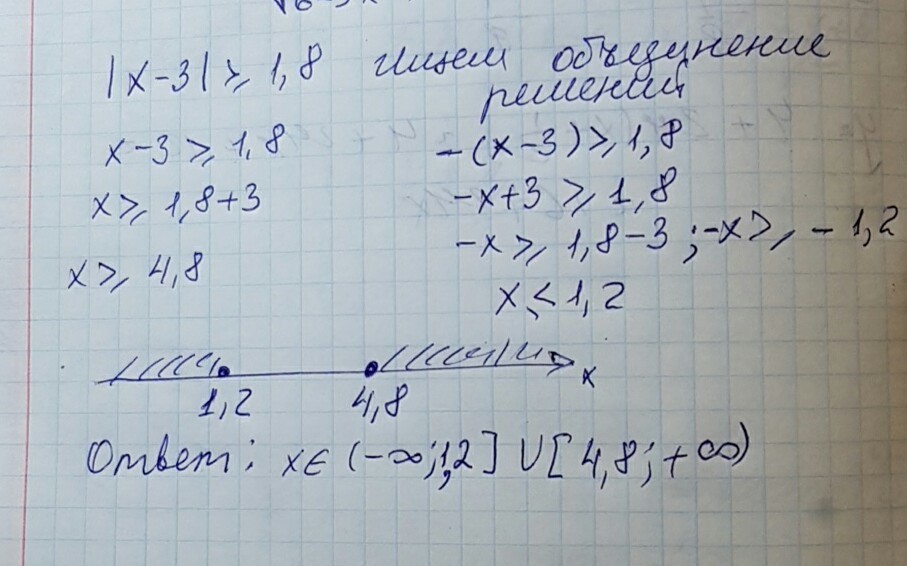 |x-3|⩾1,8 Ищем объединение
решений
x-3⩾1,8
-(x-3)⩾1,8
x⩾1,8+3
-x+3⩾1,8
-x⩾1,8-3;-x⩾-1,2
x⩾4,8
x⩽1,2
1,2 4,8 x
Ответ: x∈(-∞;1,2]∪[4,8;+∞)